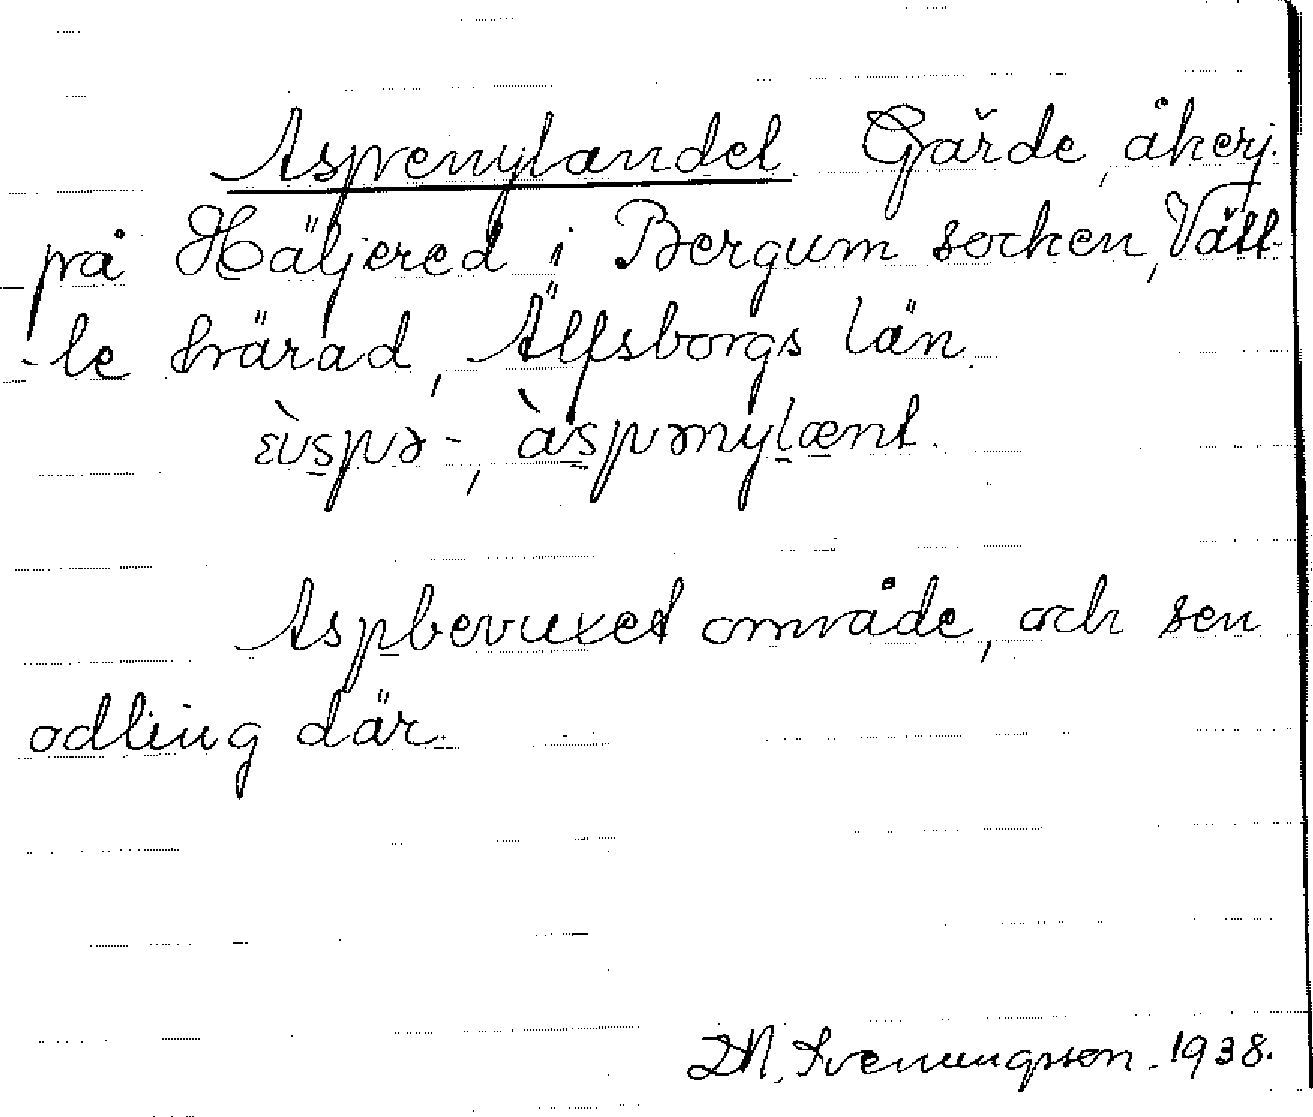 Aspenylandet Gärde, åkerj.
på Häljered i Bergum socken, Vätt-
-le härad, Älfsborgs län.
àspə-, àspənylænt.
Aspbevuxet område, och sen
odling där.
M. Svenungsson. 1938.